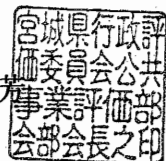 芳
宮城県行政評
価委員会公共
事業評価部
会部会長之印